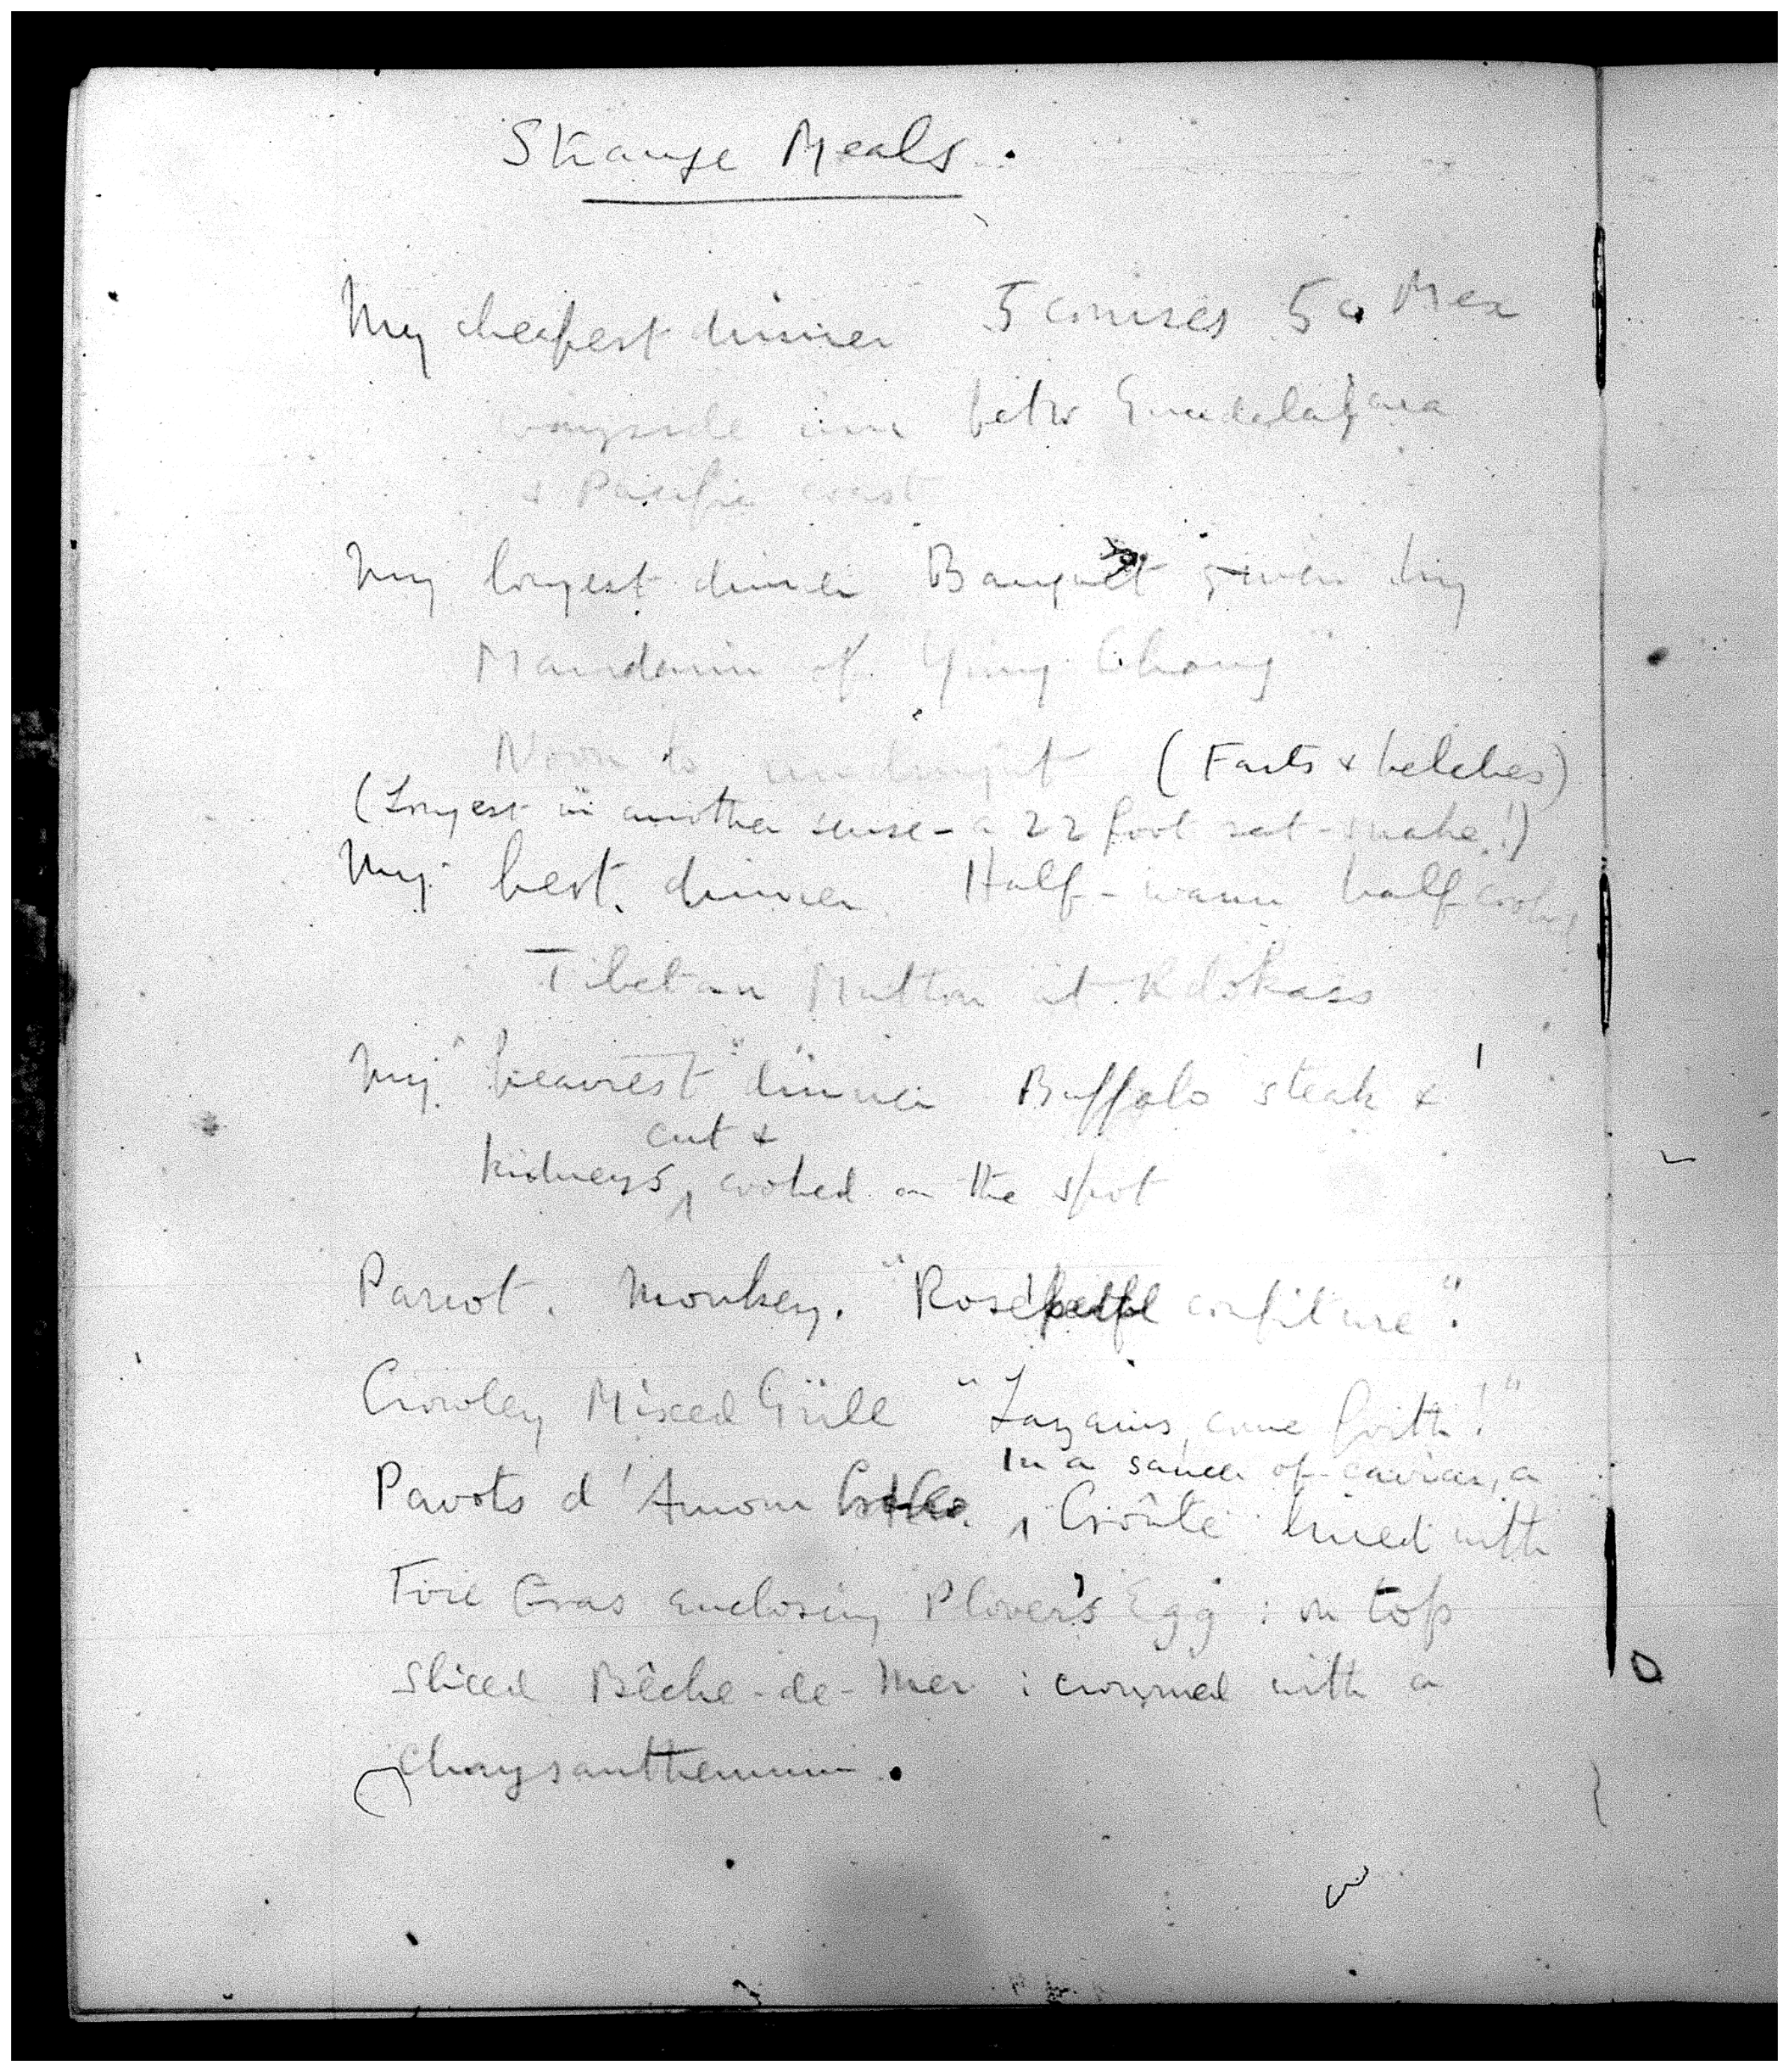 Strange Meals.
My cheapest dinner 5 courses 5c. Mex
wayside inn betw Guadalajara
& Pacific coast
My longest dinner Banquet given by
Mandarin of Yung Chang
Noon to midnight (Farts & belches)
(Longest in another sense – a 22 foot rat-snake!)
My best dinner Half-warm half cooked
Tibetan Mutton at Rdokass
My "heaviest" dinner Buffalo steak &
cut &
kidneys, cooked on the spot
Parrot. Monkey. "Rose confiture".
Crowley Mixed Grill "Lazarus, come forth!"
In a sauce of caviar, a
Pavots d'Amour Croûte lined with
Foie Gras enclosing Plover's Egg : on top
sliced Bêche-de-Mer : crowned with a
Chrysanthemum.